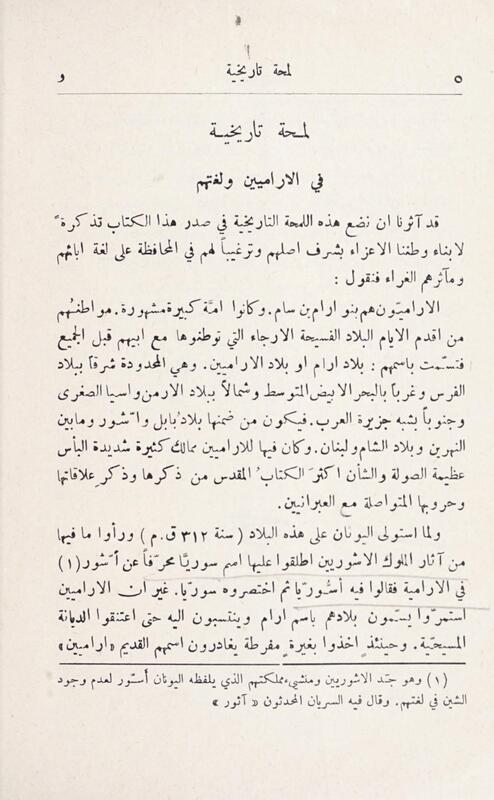 ٥ لمحة تاريخية و
لمحة تاريخية
في الاراميين ولغتهم
قد آثرنا ان نضع هذه اللمحة التاريخية في صدر هذا الكتاب تذكرةً
لابناء وطننا الاعزاء بشرف اصلهم وترغيباً لهم في المحافظة على لغة ابائهم
ومآثرهم الغراء فنقول :
الاراميّون هم بنو ارام بن سام. وكانوا امَّة كبيرة مشهورة. مواطنُهم
من اقدم الايام البلاد الفسيحة الارجاء التي توطنوها مع ابيهم قبل الجميع
فتسمَّت باسمهم : بلاد ارام او بلاد الاراميين. وهي المحدودة شرقاً ببلاد
الفرس وغرباً بالبحر الابيض المتوسط وشمالاً ببلاد الارمن واسيا الصغرى
وجنوباً بشبه جزيرة العرب. فيكون من ضمنها بلادُ بابل واثّشور ومابين
النهرين وبلاد الشام ولبنان. وكان فيها للاراميين ممالك كثيرة شديدة البأس
عظيمة الصولة والشأن اكثرَ الكتابُ المقدس من ذكرها وذكرِ علاقاتها
وحروبها المتواصلة مع العبرانيين.
ولما استولى اليونان على هذه البلاد ( سنة ٣١٢ ق.م ) ورأوا ما فيها
من آثار الملوك الاشوريين اطلقوا عليها اسم سوريَّا محرَّفاً عن أشور (١)
في الارامية فقالوا فيه أسُّوريَّا ثم اختصروه سوريَّا. غير ان الاراميين
استمرّوا يسمّون بلادهم باسم ارام وينتسبون اليه حتى اعتنقوا الديانة
المسيحيَّة. وحينئذٍ اخذوا بغيرةٍ مفرطة يغادرون اسمهم القديم «اراميين»
(١) وهو جَدّ الاشوريين ومنشئ مملكتهم الذي يلفظه اليونان أسُّور لعدم وجود
الشين في لغتهم. وقال فيه السريان المحدثون « آثور »